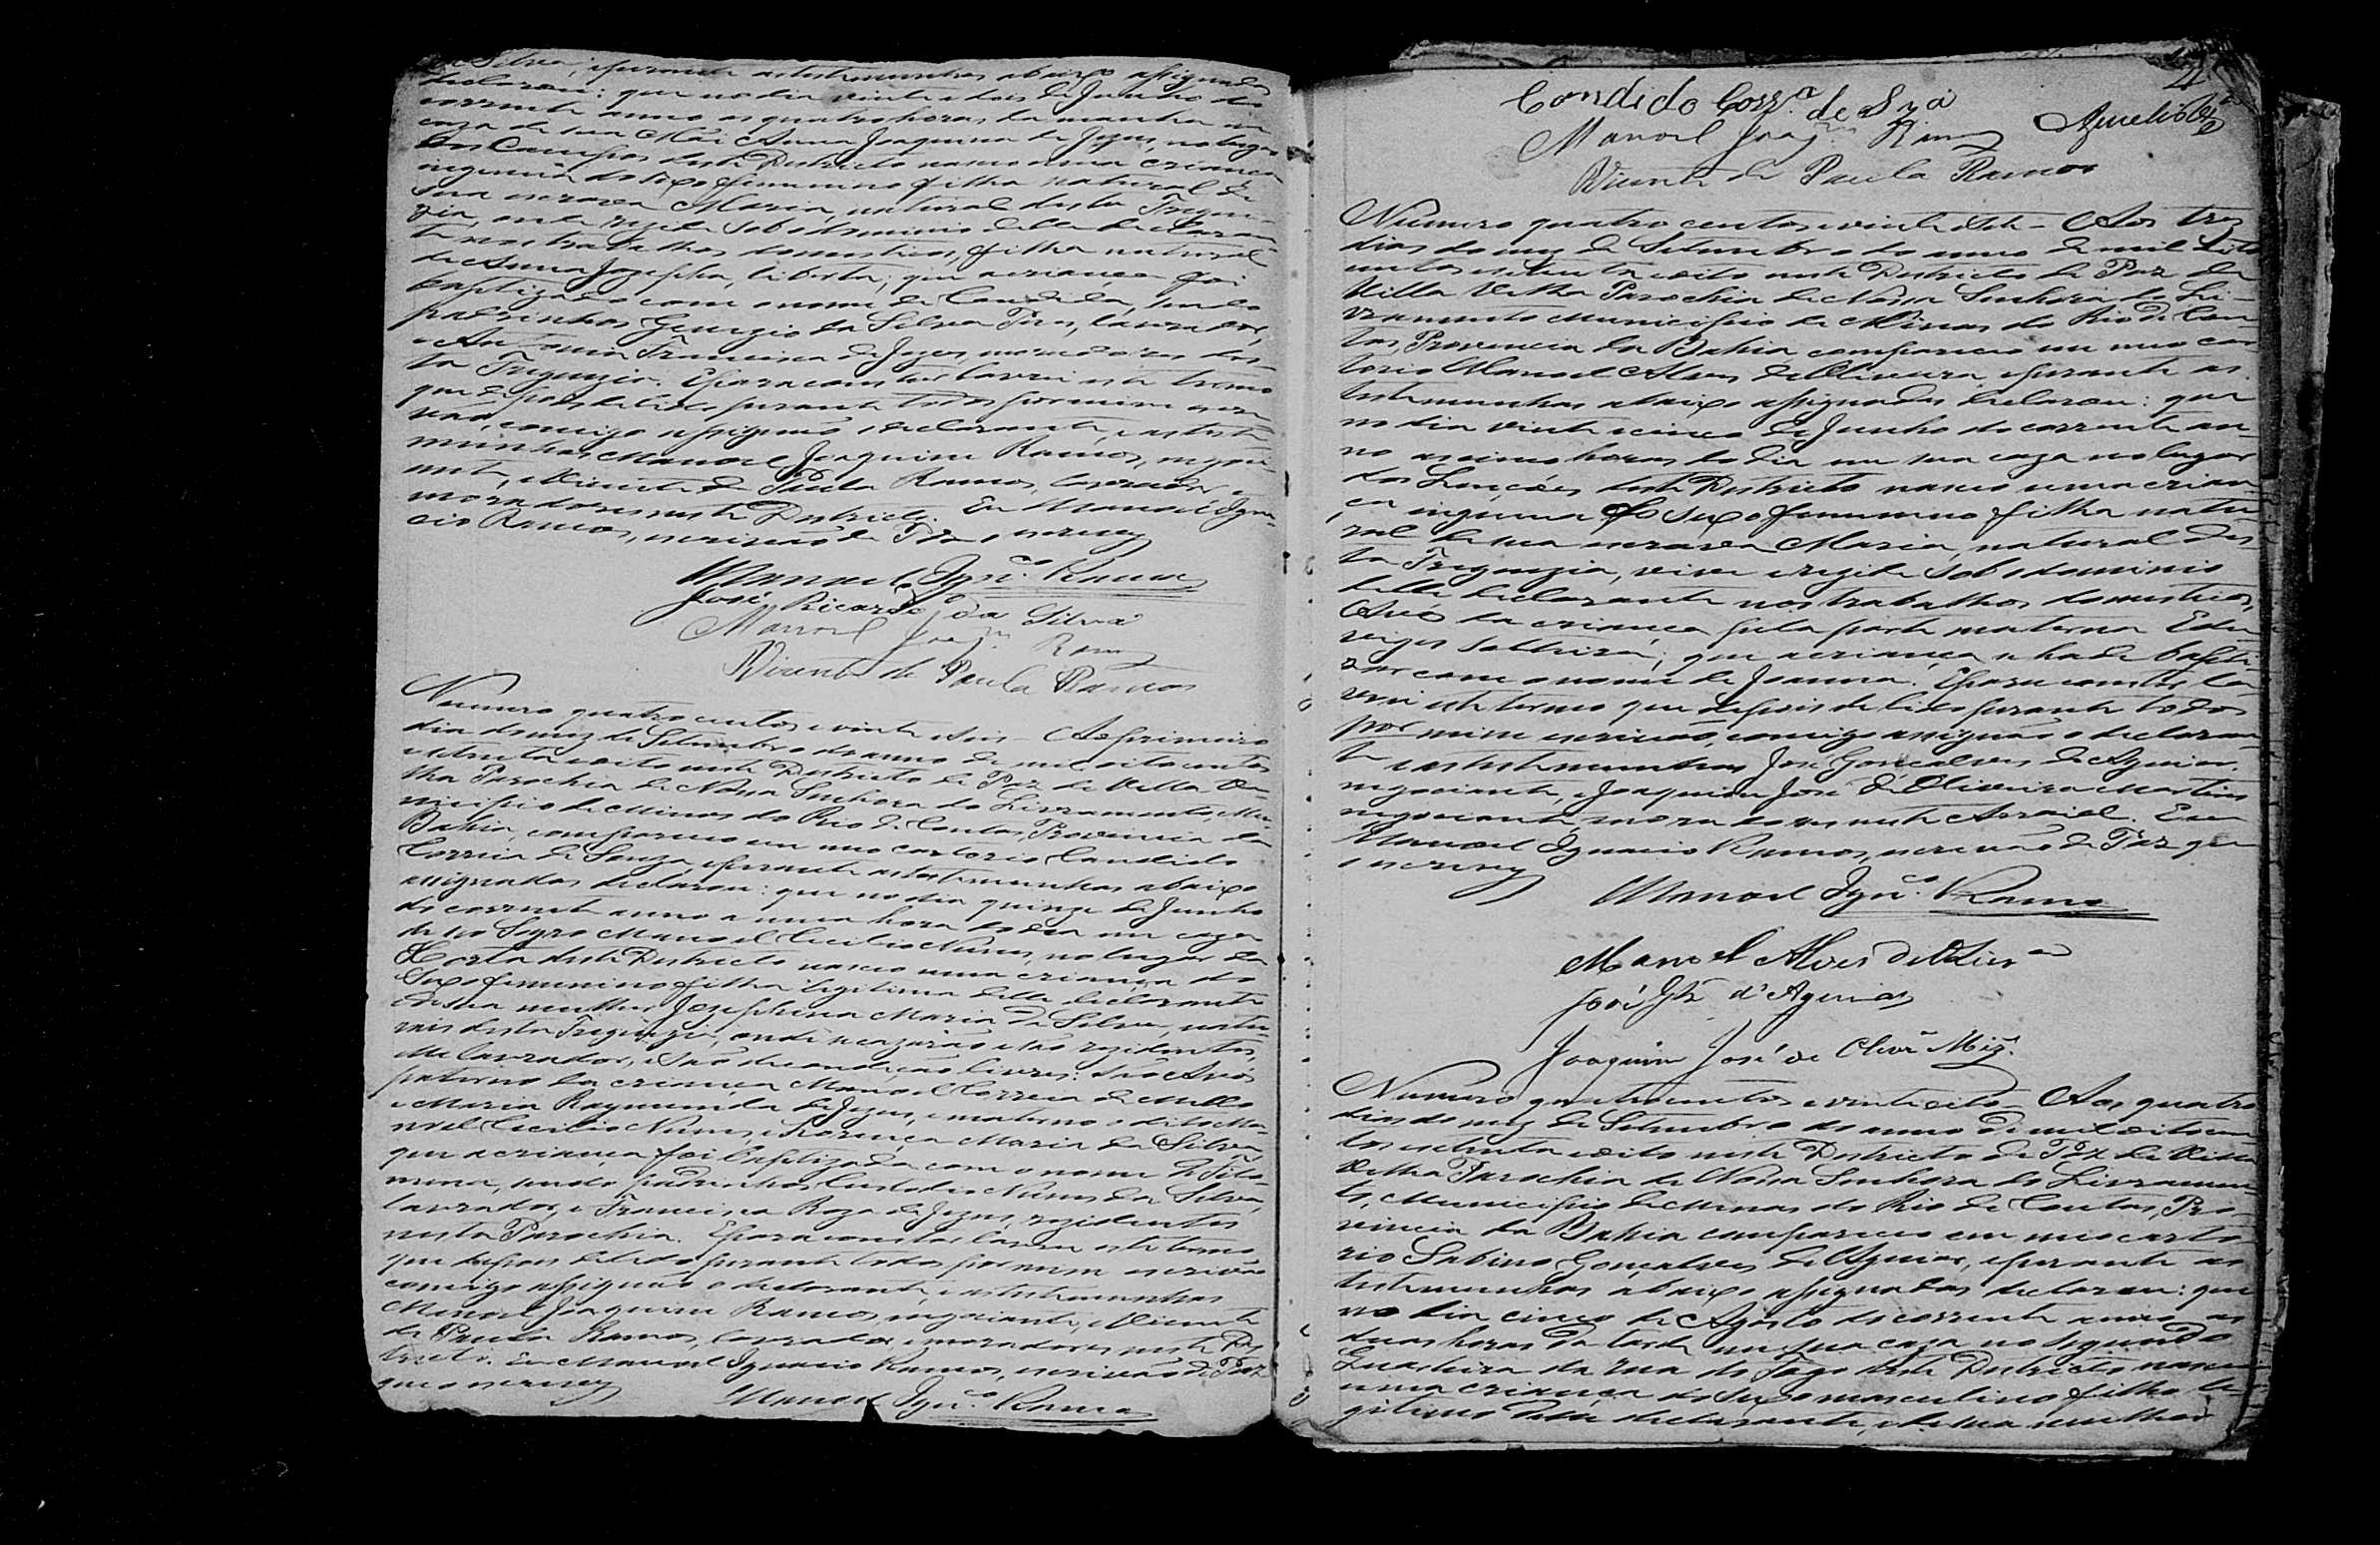 da Silva, e perante as testemunhas abaixo assignadas
declarou: que no dia vinte e dois de Junho do
corrente anno as quatro horas da manha em
caza de sua Mãi Anna Joaquina de Jezus, no lugar
dos Campos deste Districto nasceo uma criança
ingenua do sexo femenino filha natural de
sua escrava Maria, natural desta Fregue-
zia, onde rezide sob o dominio delle declaran-
te nos trabalhos domesticos, filha natural
de Anna Jozepha, liberta; que a criança foi
baptizada com o nome de Candida, sendo
padrinhos da Silva Pires, lavrador,
e Antonia Francisca de Jezus, moradores des-
ta Freguezia. E para constar lavrei este termo
que depois de lido perante todos por mim escri-
vão, comigo assignão o declarante, e as teste-
munhas Manoel Joaquim Ramos, negoci-
ante, e Vicente de Paula Ramos, lavrador,
moradores neste Districto. Eu Manoel Igna-
cio Ramos, escrivão de Paz o escrevy
Manoel Ign.co Ramos
José Ricardo da Silva
Manoel Joaq.m Ramos
Vicente de Paula Ramos
Numero quatro centos e vinte e seis - Ao primeiro
dia do mez de Setembro do anno de mil oito centos
e setenta e oito neste Districto de Paz da Villa Ve-
lha Parochia de Nossa Senhora do Livramento, Mu-
nicipio de Minas do Rio de Contas, Provincia da
Bahia, compareceo em meo cartorio Candido
Correia de Souza, e perante as testemunhas abaixo
assignadas declarou: que no dia quinze de Junho
do corrente anno a uma hora do dia em caza
de seo Sogro Manoel Cecilio Nunes, no lugar da
Horta deste Districto nasceo uma criança do
Sexo femenino filha legitima delle declarante
e de sua mulher Jozephina Maria da Silva, natu-
rais desta Freguezia, onde se cazarão e são rezidentes,
elle lavrador, e são de condição livres: são Avós
paternos da criança Manoel Correia de Mello
e Maria Raymunda de Jezus, e maternos o dito Ma-
noel Cecilio Nunes, e Maria da Silva,
que a criança foi baptizada com o nome de Filo-
mena, sendo padrinhos Custodio Nunes da Silva,
lavrador, e Francisca Roza de Jezus, rezidentes
nesta Parochia. E para constar lavrei este termo
que depois de lido perante todos por mim escrivão
comigo assignão o declarante, e as testemunhas
Manoel Joaquim Ramos, negociante, e Vicente
de Paula Ramos, lavrador, e moradores neste Dis-
tricto. Eu Manoel Ignacio Ramos, escrivão de Paz
que o escrevy
Manoel Ign.co Ramos
Candido Corr.a de Sza
Manoel Joaq.m Ramos
Vicente de Paula Ramos
Numero quatro centos e vinte e sete - Aos tres
dias do mez de Setembro do anno de mil oito
centos e setenta e oito neste Districto de Paz da
Villa Velha Parochia de Nossa Senhora do Li-
vramento Municipio de Minas do Rio de Con-
tas, Provincia da Bahia compareceo em meo car-
torio Manoel Alves de Oliveira, e perante as
testemunhas abaixo assignadas declarou: que
no dia vinte e cinco de Junho do corrente an-
no as cinco horas do dia em sua caza no lugar
dos Lençóes deste Districto nasceo uma crian-
ça ingenua do sexo femenino filha natu-
ral de sua escrava Maria, natural des-
ta Freguezia, vive e rezide sob o dominio
delle declarante nos trabalhos domesticos,
Avó da criança pela parte materna Edu-
viges solteira; que a criança se hade bapti-
zar com o nome de Joanna. E para constar la-
vrei este termo que depois de lido perante todos
por mim escrivão, comigo assignão o declaran-
te e as testemunhas José Gonçalves de Aguiar,
negociante, e Joaquim José de Oliveira Martins
negociante, moradores neste Arraial. Eu
Manoel Ignacio Ramos, escrivão de Paz que
o escrevy
Manoel Ign.co Ramos
Manoel Alves de Oliv.ra
José Glz d'Aguiar
Joaquim José de Olivr.a Miz.
Numero quatro centos e vinte e oito - Aos quatro
dias do mez de Setembro do anno de mil e oito cen-
tos e setenta e oito neste Districto de Paz da Villa
Velha Parochia de Nossa Senhora do Livramen-
to, Municipio de Minas do Rio de Contas, Pro-
vincia da Bahia compareceo em meo carto-
rio Sabino Gonçalves de Aguiar, e perante as
testemunhas abaixo assignadas declarou: que
no dia cinco de Agosto do corrente anno as
duas horas da tarde em sua caza no segundo
Quarteirão da rua do fogo deste Districto nasceo
uma criança do sexo masculino filho le-
gitimo delle declarante, e de sua mulher